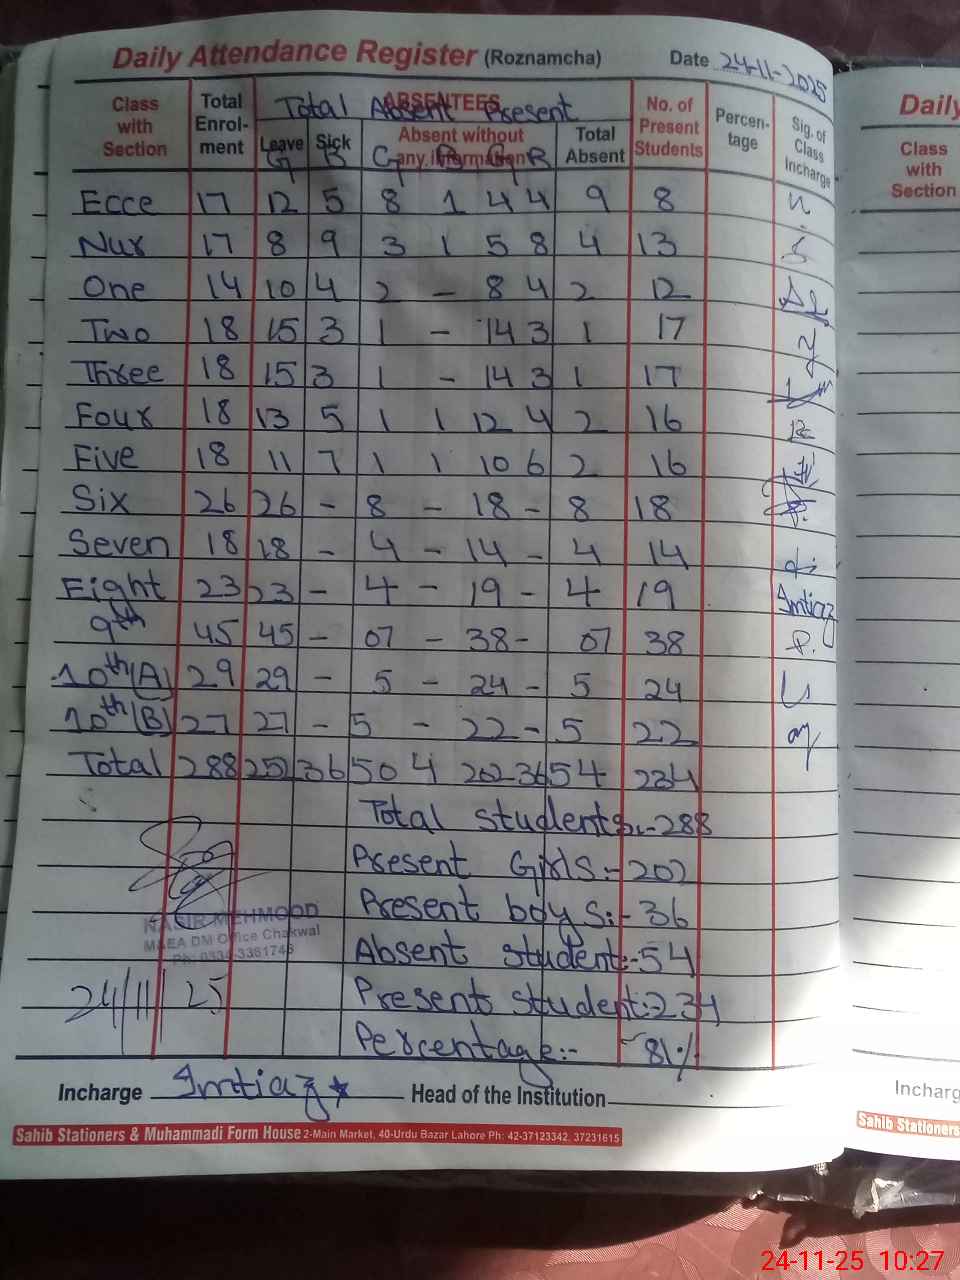 Daily Attendance Register (Roznamcha) Date 24-11-2025
Class with Section Total Enrol-ment ABSENTEES No. of Present Students Percen-tage Sig. of Class Incharge
Total Absent Present
Leave Sick Absent without any information Total Absent
G B G B G B
Ecce 17 12 5 8 1 4 4 9 8
Nur 17 8 9 3 1 5 8 4 13
One 14 10 4 2 - 8 4 2 12
Two 18 15 3 1 - 14 3 1 17
Three 18 15 3 1 - 14 3 1 17
Four 18 13 5 1 1 12 4 2 16
Five 18 11 7 1 1 10 6 2 16
Six 26 26 - 8 - 18 - 8 18
Seven 18 18 - 4 - 14 - 4 14
Eight 23 23 - 4 - 19 - 4 19 Imtiaz
9th 45 45 - 07 - 38 - 07 38
10th (A) 29 29 - 5 - 24 - 5 24
10th (B) 27 27 - 5 - 22 - 5 22
Total 288 252 36 50 4 202 36 54 234
Total students:-288
Present Girls:-202
Present boys:-36
Absent student:-54
Present student:-234
Percentage:- 81%
NASIR MEHMOOD
M&EA DM Office Chakwal
24/11/25
Incharge Imtiaz Head of the Institution
Sahib Stationers & Muhammadi Form House 2-Main Market, 40-Urdu Bazar Lahore Ph: 42-37123342, 37231615
Daily
Class with Section
Incharg
Sahib Stationers
24-11-25 10:27